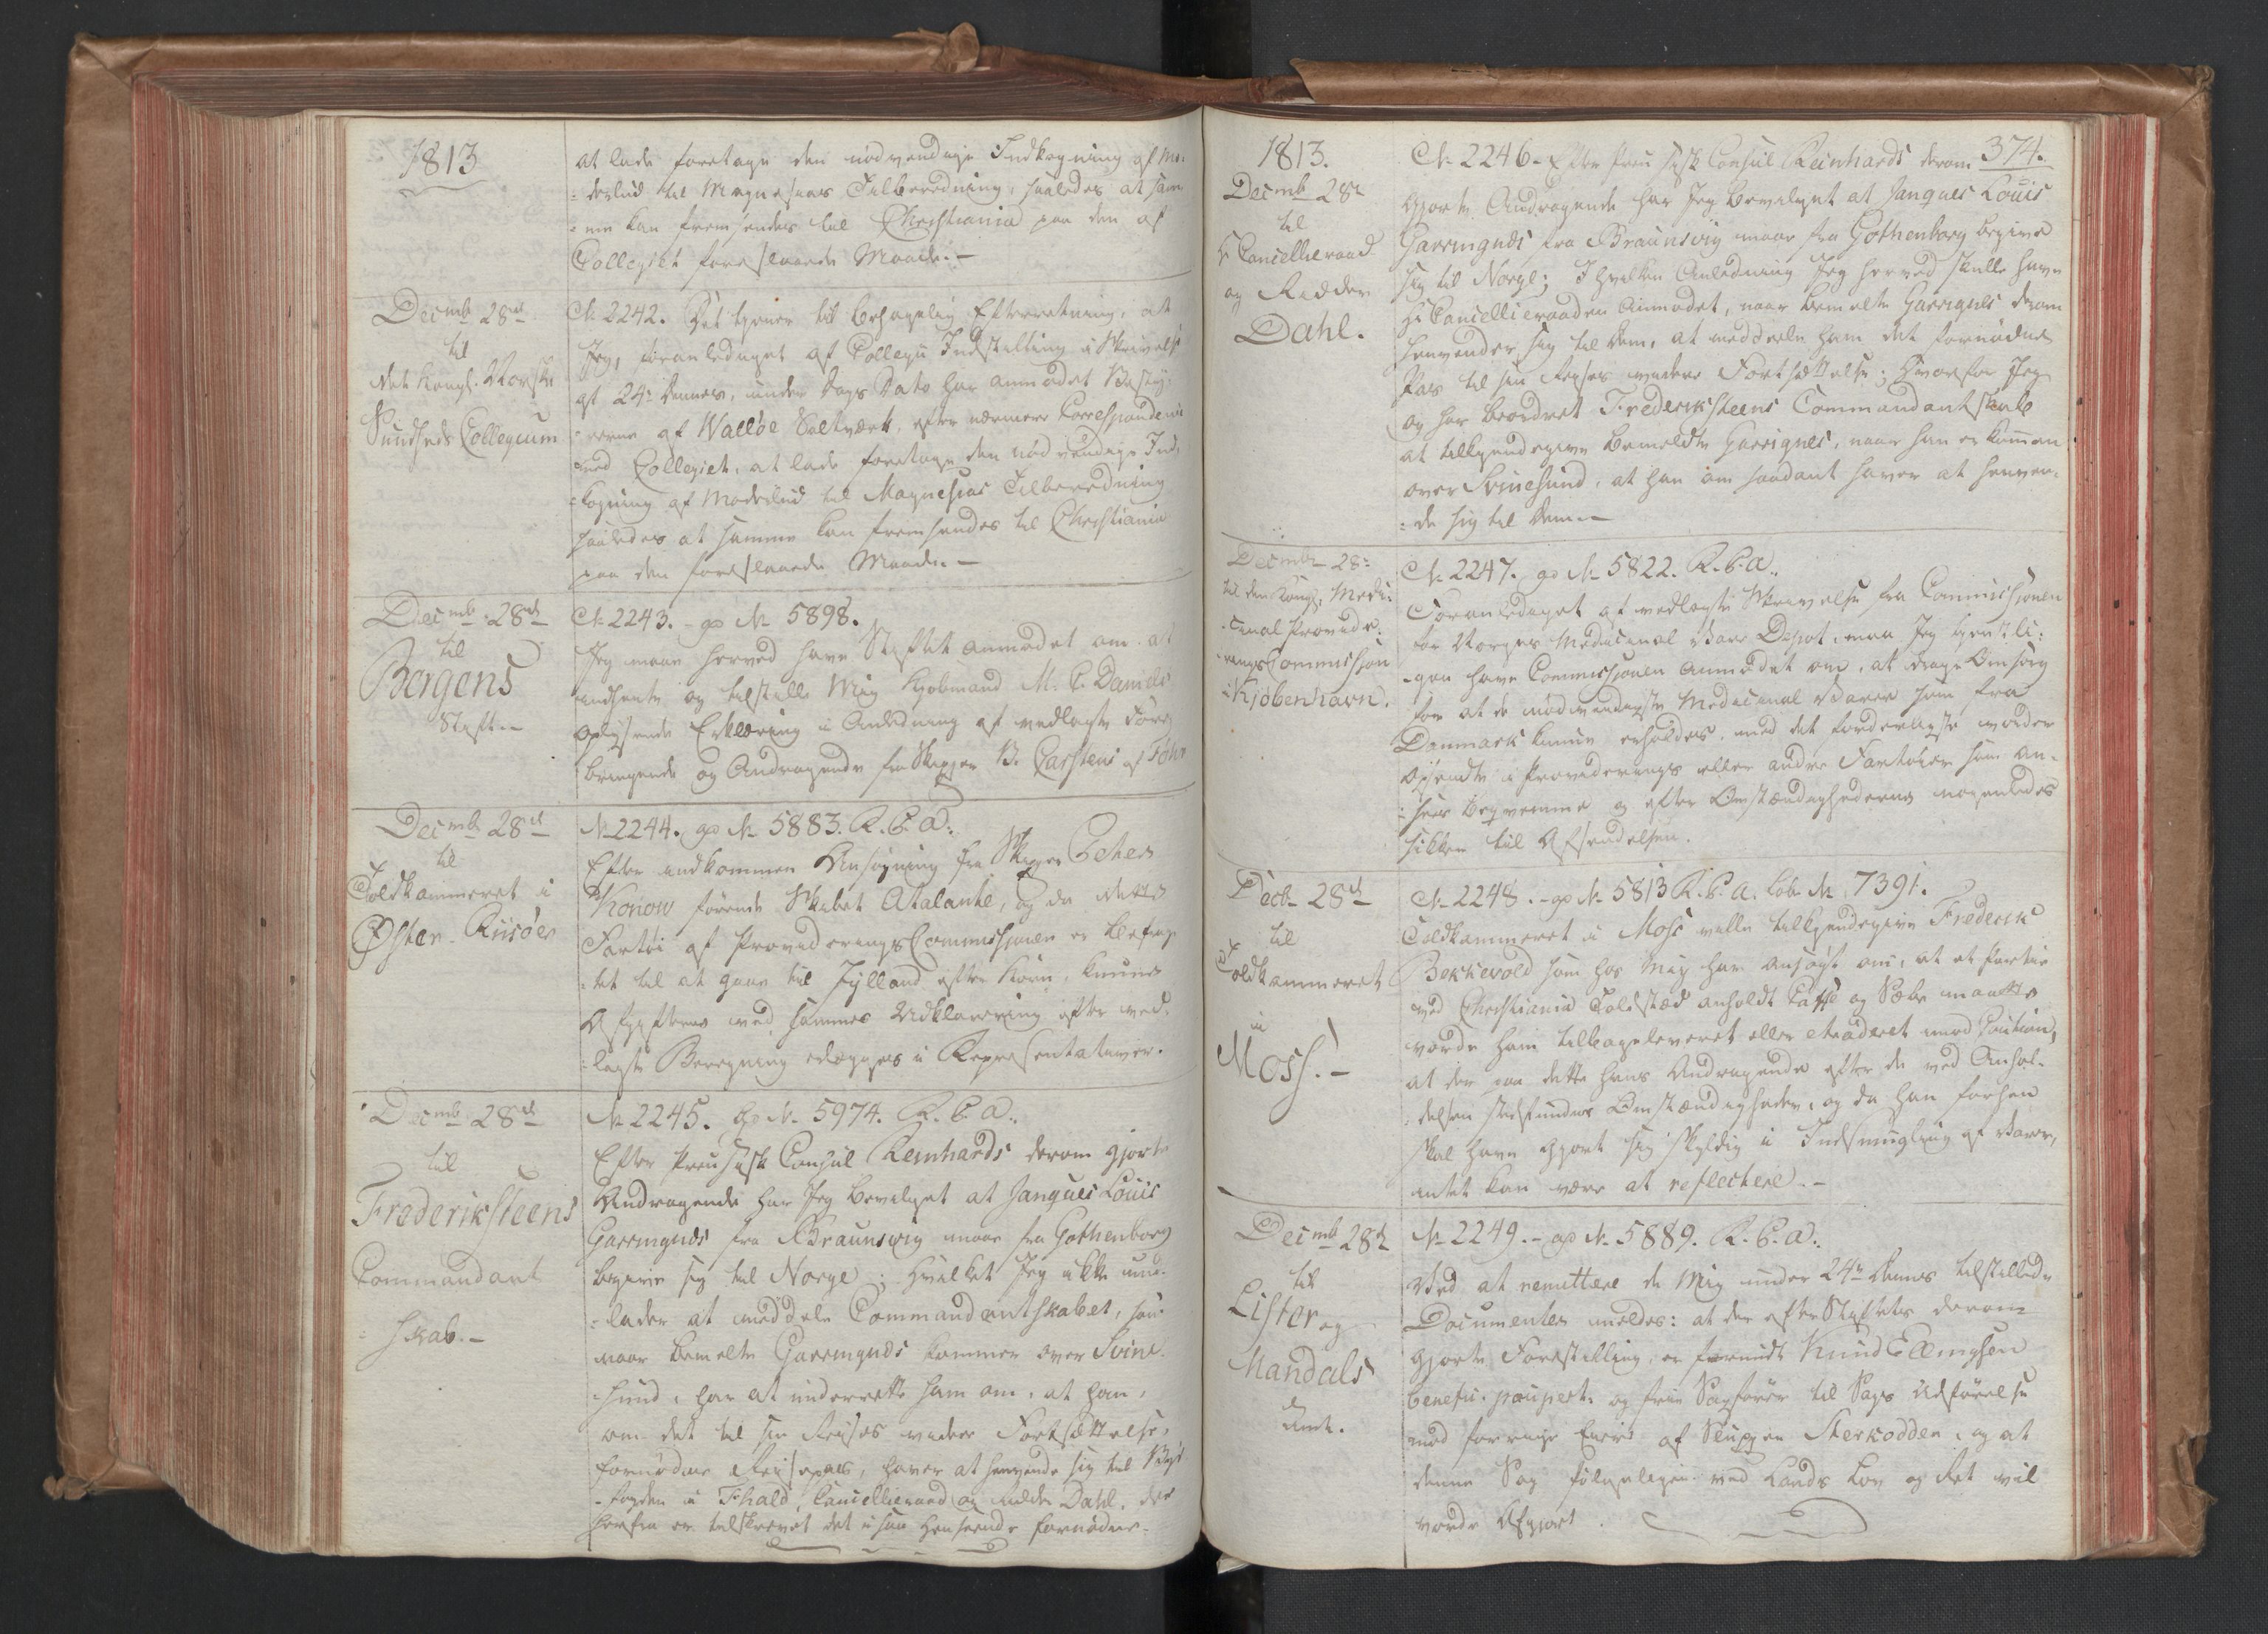 1813
at lade foretage den nödvendige Indkogning af Mo-
derlud til Magnesias Tilberedning, saaledes at sam-
me kan fremsendes til Christiania paa den af
Collegiet foreslaaede Maade.-
Decmb 28de
til
det Kongl. Norske
Sundheds Collegium
No 2242. Det tjener til behagelig Efterretning, at
Jeg, foranlediget af Collegii Indstilling i Skrivelse
af 24de dennes, under Dags Dato har anmodet Besty-
rerne af Walløe Saltværk, efter nærmere Correspondence
med Collegiet, at lade foretage den nödvendige Ind-
kogning af Moderlud til Magnesias Tilberedning
saaledes at samme kan fremsendes til Christiania
paa den foreslaaede Maade.-
Decmb 28de
til
Bergens
Stift.-
No 2243. - No 5898.
Jeg maae herved have Stiftet anmodet om at
indhente og tilstille Mig Kjöbmand M. C. Daniels
oplysende Erklæring i Anledning af vedlagte Fore-
bringende og Andragende fra Skipper B. Carstens af Föhr
Decmb 28de
til
Toldkammeret i
Øster-Riisøer
No 2244. No 5883. R. C. A.
Efter indkommen Ansøgning fra Skipper Peter
Konow förende Skibet Atalante, og da dette
Fartöi af ProvideringsCommissionen er befrag-
tet til at gaae til Jylland efter Korn, kunne
Afgifterne ved sammes Udklarering efter ved-
lagte Beregning erlægges i Repræsentativer.
Decmb 28de
til
Frederiksteens
Commandant
skab.-
No 2245. No 5974. R. C. A.
Efter Preussisk Consul Reinhards derom gjorte
Andragende har Jeg bevilget at Janques Louis
Garrmgnds fra Braunswig maae fra Gothenborg
begive sig til Norge; hvilket Jeg ikke und-
lader at meddele Commandantskabet, som
naar bemelte Garrmgnds kommer over Svine-
sund, har at underrette ham om, at han,
om det til sin Reises videre Fortsættelse,
fornødne Reisepas, haver at henvende sig til By-
fogden i Fhald, Cancelliraad og Ridder Dahl, der
herfra er tilskrevet det i saa Henseende fornødne.
374.
1813.
Decmb 28de
til
Hr Cancellieraad
og Ridder
Dahl.
No 2246- Efter Preussisk Consul Reinhards derom
gjorte Andragende har Jeg bevilget at Janques Louis
Garrmgnds fra Braunsvig maae fra Gothenborg begive
sig til Norge; I hvilken Anledning Jeg herved skulle have
Hr Cancellieraaden anmodet, naar bemelte Garrignes derom
henvender sig til Dem, at meddele ham det fornødne
Pas til sin Reises videre Fortsættelse; Hvorfor Jeg
og har beordret Frederiksteens Commandantskab
at tilkjendegive bemeldte Garrignes, naar han er kommen
over Svinesund, at han om saadant haver at henven-
de sig til Dem.-
Decmb 28de
til den Kongl. Medi-
cinal Provide-
ringsCommission
i Kjöbenhavn.
No 2247. No 5822. R. C. A.
Foranlediget af vedlagte Skrivelse fra Commissionen
for Norges Medicinal Vare Depot, maa Jeg tjenstli-
gen have Commissionen anmodet om, at drage Omsorg
for at de nödvendigste Medicinal Varer som fra
Danmark kunne erholdes, med det forderligste vorder
afsendte i Providerings eller andre Fartöier som an-
sees beqvemme og efter Omstændighederne nogenledes
sikkre til Afsendelsen.
Decb 28de
til
Toldkammeret
i
Moss.-
No 2248. - No 5813 R. C. A. Lob. No 7391.
Toldkammeret i Moss ville tilkjendegive Frederik
Bokkevold som hos Mig har ansögt om, at et Partie
ved Christiania Toldsted anholdt Caffe og Sæbe maatte
vorde ham tilbageleveret eller extraderet imod Caution,
at der paa dette hans Andragende efter de ved Anhol-
delsen stedfundne Omstændigheder, og da han forhen
skal have gjort sig skyldig i Indsmugling af Varer,
intet kan være at reflectere.-
Decmb 28de
til
Lister og
Mandals
Amt.
No 2249. - No 5889. R. C. A.
Ved at remittere de Mig under 24de dennes tilstillede
Documenter meldes: at der efter Stiftets derom
gjorte Forestilling er forundt Knud Ellingsen
benefic. paupert. og frie Sagförer til Sags Udförelse
mod forrige Eiere af Sluppen Sterkodder, og at
denne Sag fölgeligen ved Lands Lov og Ret vil
vorde Afgjort.